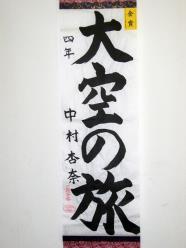 金賞
大空の旅
四年
中村杏奈